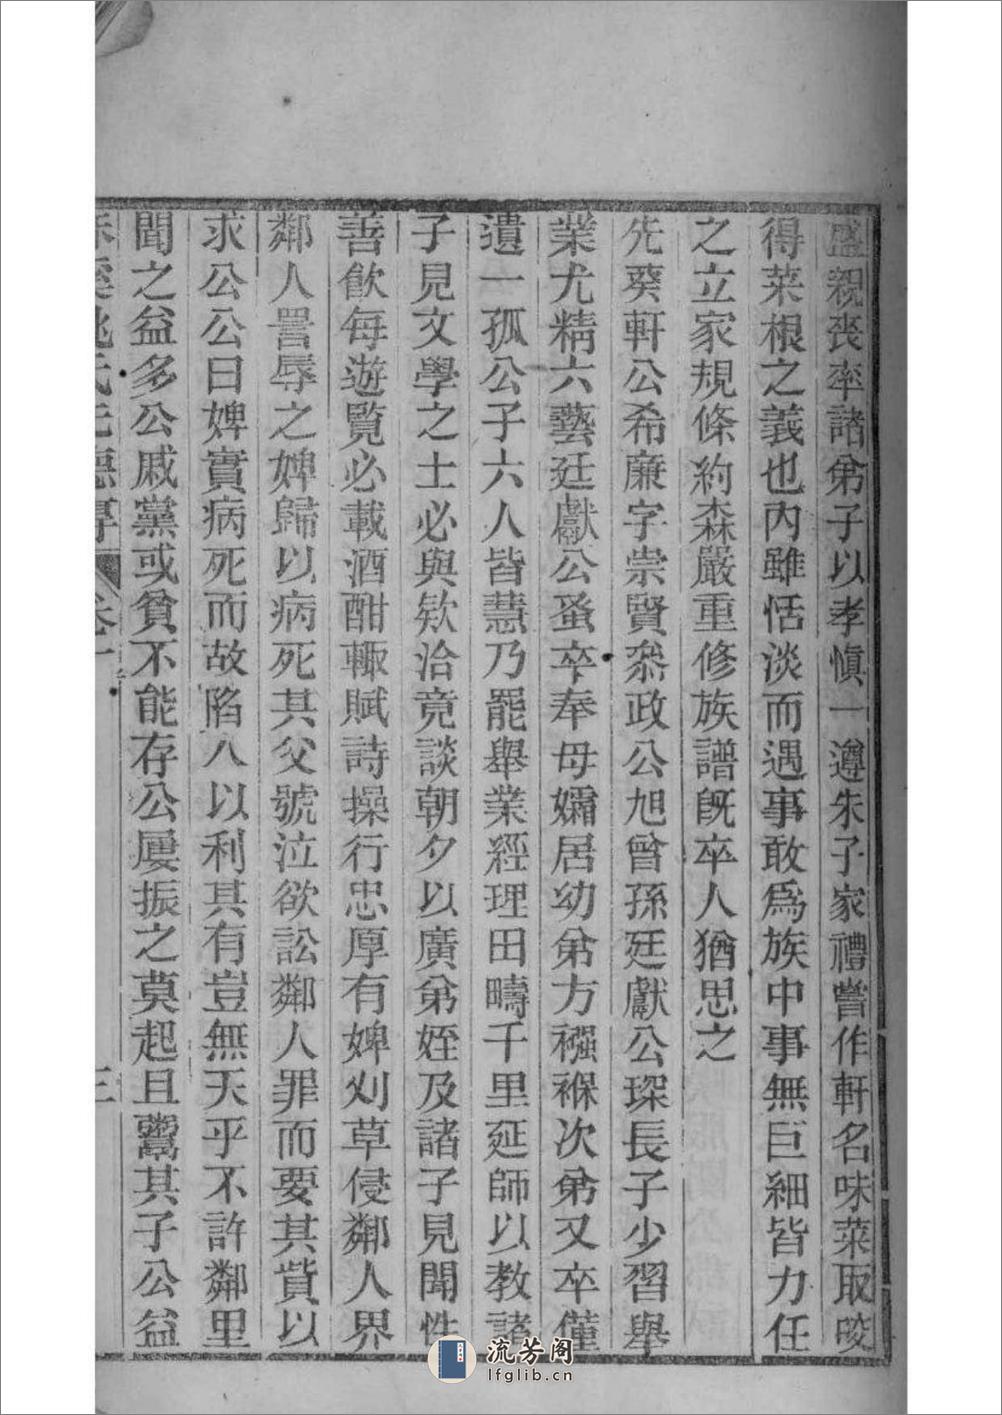 盛親喪率諸弟子以孝慎一遵朱子家禮嘗作軒名味菜取咬
得菜根之義也內雖恬淡而遇事敢爲族中事無巨細皆力任
之立家規條約森嚴重修族譜旣卒人猶思之
先葵軒公希廉字崇賢叅政公旭曾孫廷獻公琛長子少習舉
業尤精六藝廷獻公蚤卒奉母孀居幼弟方襁褓次弟又卒僅
遺一孤公子六人皆慧乃罷舉業經理田疇千里延師以教諸
子見文學之士必與欵洽竟談朝夕以廣弟姪及諸子見聞性
善飮每遊覽必載酒酣輙賦詩操行忠厚有婢刈草侵鄰人界
鄰人詈辱之婢歸以病死其父號泣欲訟鄰人罪而要其貲以
求公公曰婢實病死而故陷人以利其有豈無天乎不許鄰里
聞之益多公戚黨或貧不能存公屢振之莫起且鬻其子公益
姚氏先德傳 卷一 三
流芳阁
lfglib.cn